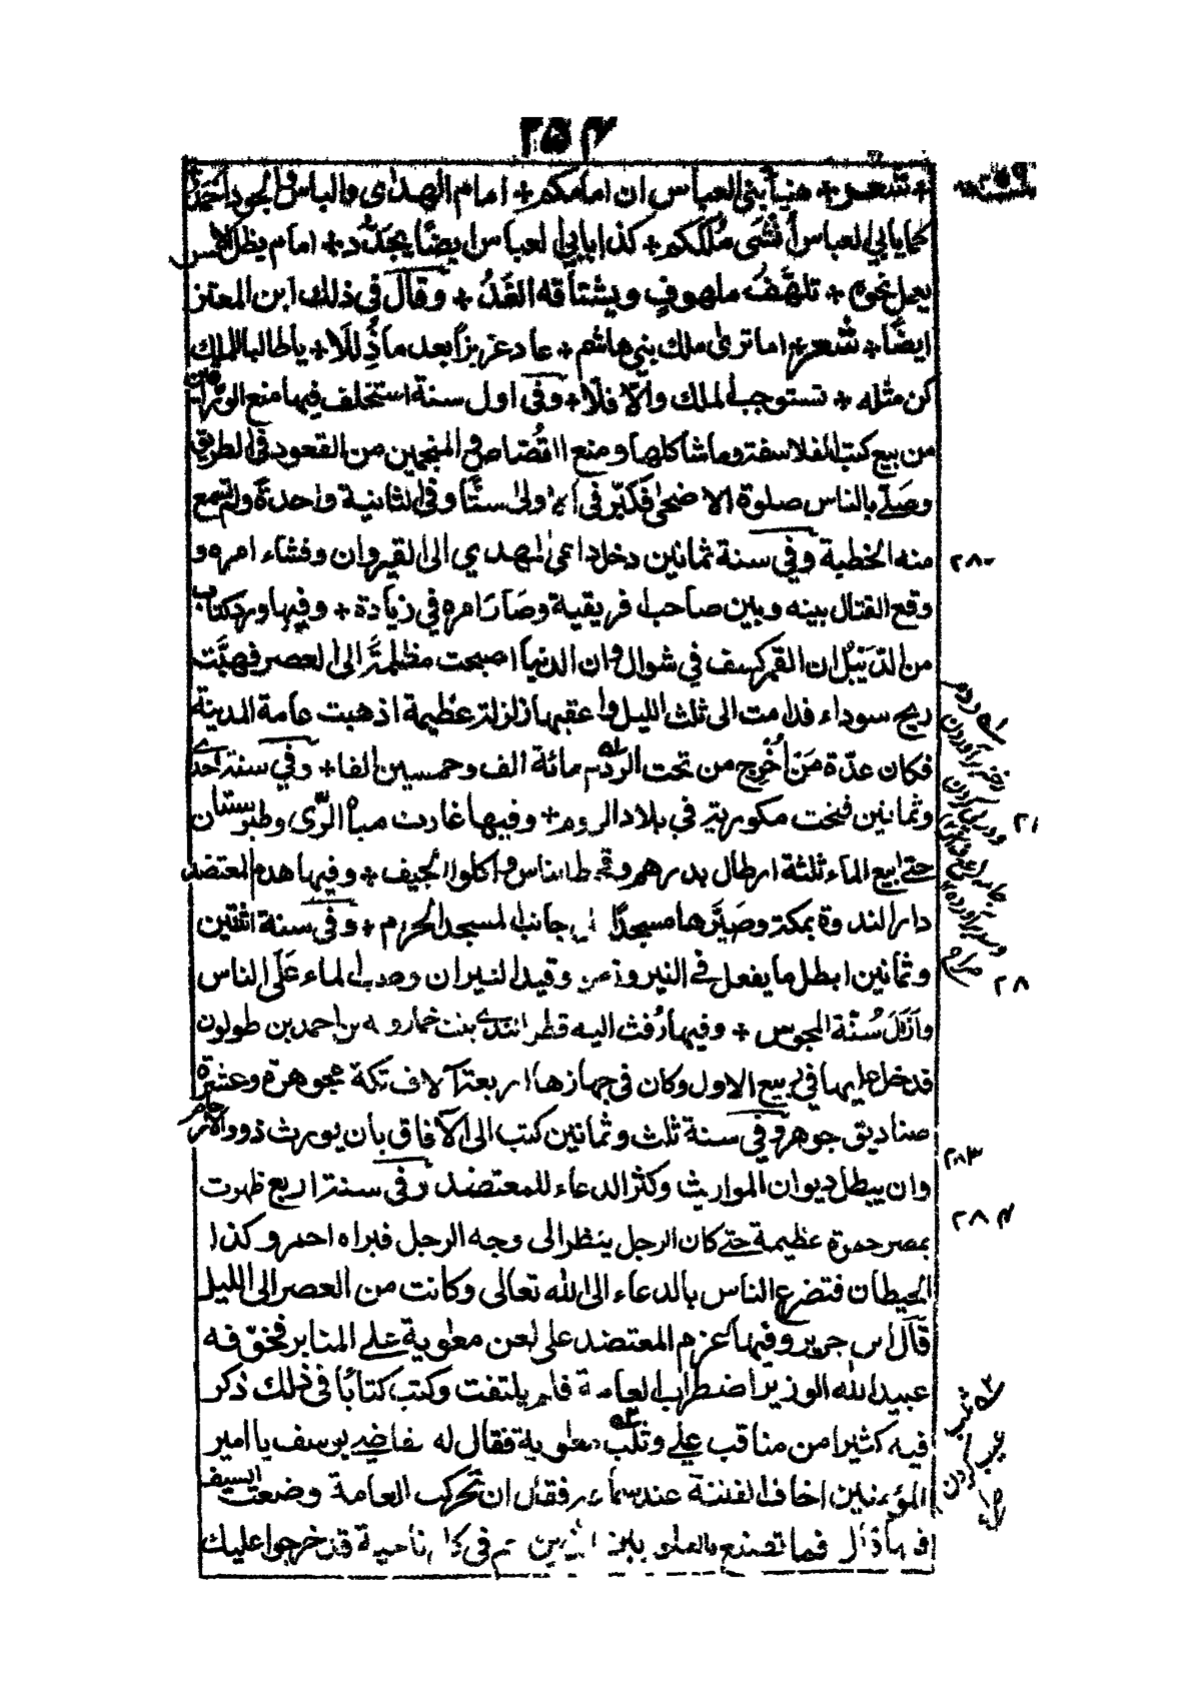 ۲۵۴
+ شعر + هنيأ بني العباس ان امامكم + امام الهدى والباس والجود احمد
كما بابي العباس أنشئ ملككم + كذا بابي العباس ايضًا يجدّد + امام يظل الامس
يعمل نحوه + تلهّفُ ملهوفٍ ويشتاقه الغَدُ + وقال في ذلك ابن المعتز
ايضًا + شعر + اما ترى ملك بني هاشم + عاد عزيزاً بعد ما ذُلِّلا + يا طالبا للملك
كن مثله + تستوجب الملك والّا فلا + وفى اول سنة استخلف فيها منع الوراقين
من بيع كتب الفلاسفة وما شاكلها ومنع القُصّاص والمنجمين من القعود في الطريق
وصلّے بالناس صلوة الاضحى فكبّر فى الاولى ستًّا وفي الثانية واحدةً ولم تسمع
منه الخطبة وفي سنة ثمانين دخل داعى المهدي الى القيروان وفشاء امره و
۲۸۰
وقع القتال بينه وبين صاحب افريقية وصار امره في زيادة + وفيها ورد كتاب
من الدّيبُل ان القمر كسف في شوال وان الدنيا اصبحت مظلمةً الى العصر فهبّت
ريح سوداء فدامت الى ثلث الليل واعقبها زلزلة عظيمة اذهبت عامة المدينة
فكان عدّة مَن أُخْرِج من تحت الردم مائة الف وخمسين الفا + وفي سنة احدے
وثمانين فتحت مكورية في بلاد الروم + وفيها غارت مياه الرّى وطبرستان
حتے ابيع الماء ثلثة ارطال بدرهم وقحط الناس واكلوا الجيف + وفيها هدم المعتضد
دار الندوة بمكة وصيّرها مسجدًا الى جانب المسجد الحرم + وفى سنة اثنتين
وثمانين ابطل ما يفعل في النيروز من وقيد النيران وصب الماء علَى الناس
۲۸
وأزال سُنّة المجوس + وفيها زُفّت اليه قطر الندے بنت خمارويه بن احمد بن طولون
فدخل عليها في ربيع الاول وكان فى جهازها اربعة آلاف تكة مجوهرة وعشرة
صناديق جوهر وفي سنة ثلث وثمانين كتب الى الآفاق بأن يورث ذوو الارحام
۲۸۳
وان يبطل ديوان المواريث وكثر الدعاء للمعتضد وفى سنة اربع ظهرت
۲۸۴
بمصر حمرة عظيمة حتے كان الرجل ينظر الى وجه الرجل فيراه احمر وكذا
الحيطان فتضرع الناس بالدعاء الى الله تعالى وكانت من العصر الى الليل
قال ابن جرير وفيها عزم المعتضد على لعن معاوية علے المنابر فخوّفه
عبيد الله الوزير اضطراب العامة فلم يلتفت وكتب كتابًا فى ذلك ذكر
فيه كثيرا من مناقب علے وثلب معاوية فقال له القاضے يوسف يا امير
المؤمنين اخاف الفتنة عند سماعه فقال ان تحركت العامة وضعت السيف
فيها قال فما تصنع بالعلويين الذين هم فى كل ناحية قد خرجوا عليك